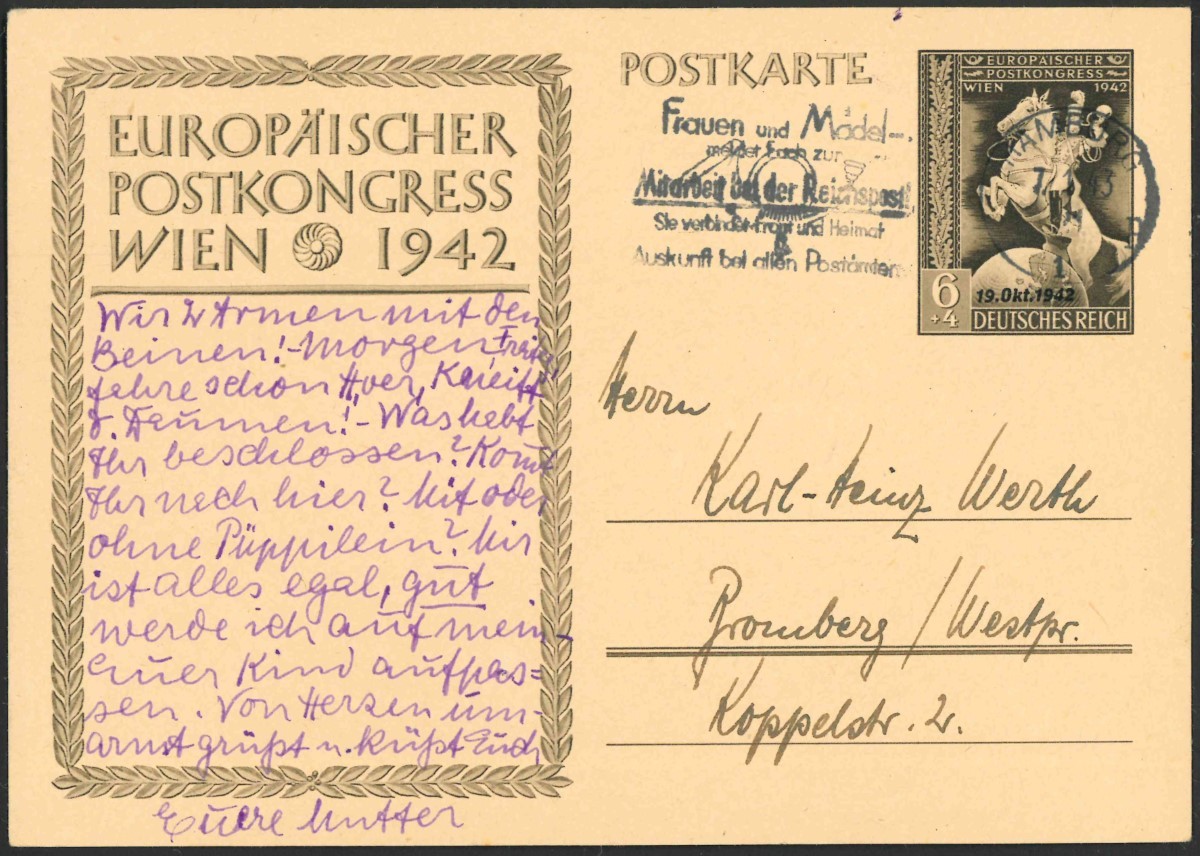 EUROPÄISCHER
POSTKONGRESS
WIEN 1942
Wir 2 Armen mit den
Beinen!-Morgen
Jahre schon
Daumen!-Was habt
Ihr beschlossen? Kommt
Ihr noch hier? Mit oder
ohne Püppilein? Mir
ist alles egal, gut
werde ich auf mein-
Euer Kind aufpas=
sen. Von Herzen um-
armt grüßt u. küßt Euch
Euere Mutter
POSTKARTE
Frauen und Mädel
meldet Euch zur
Mitarbeit bei der Reichspost!
Sie verbindet Front und Heimat
Auskunft bei allen Postämtern
EUROPÄISCHER
POSTKONGRESS
WIEN 1942
HAMBURG
1
6
+4
19.Okt.1942
DEUTSCHES REICH
Herrn
Karl-Heinz Werth
Bromberg/Westpr.
Koppelstr. 2.